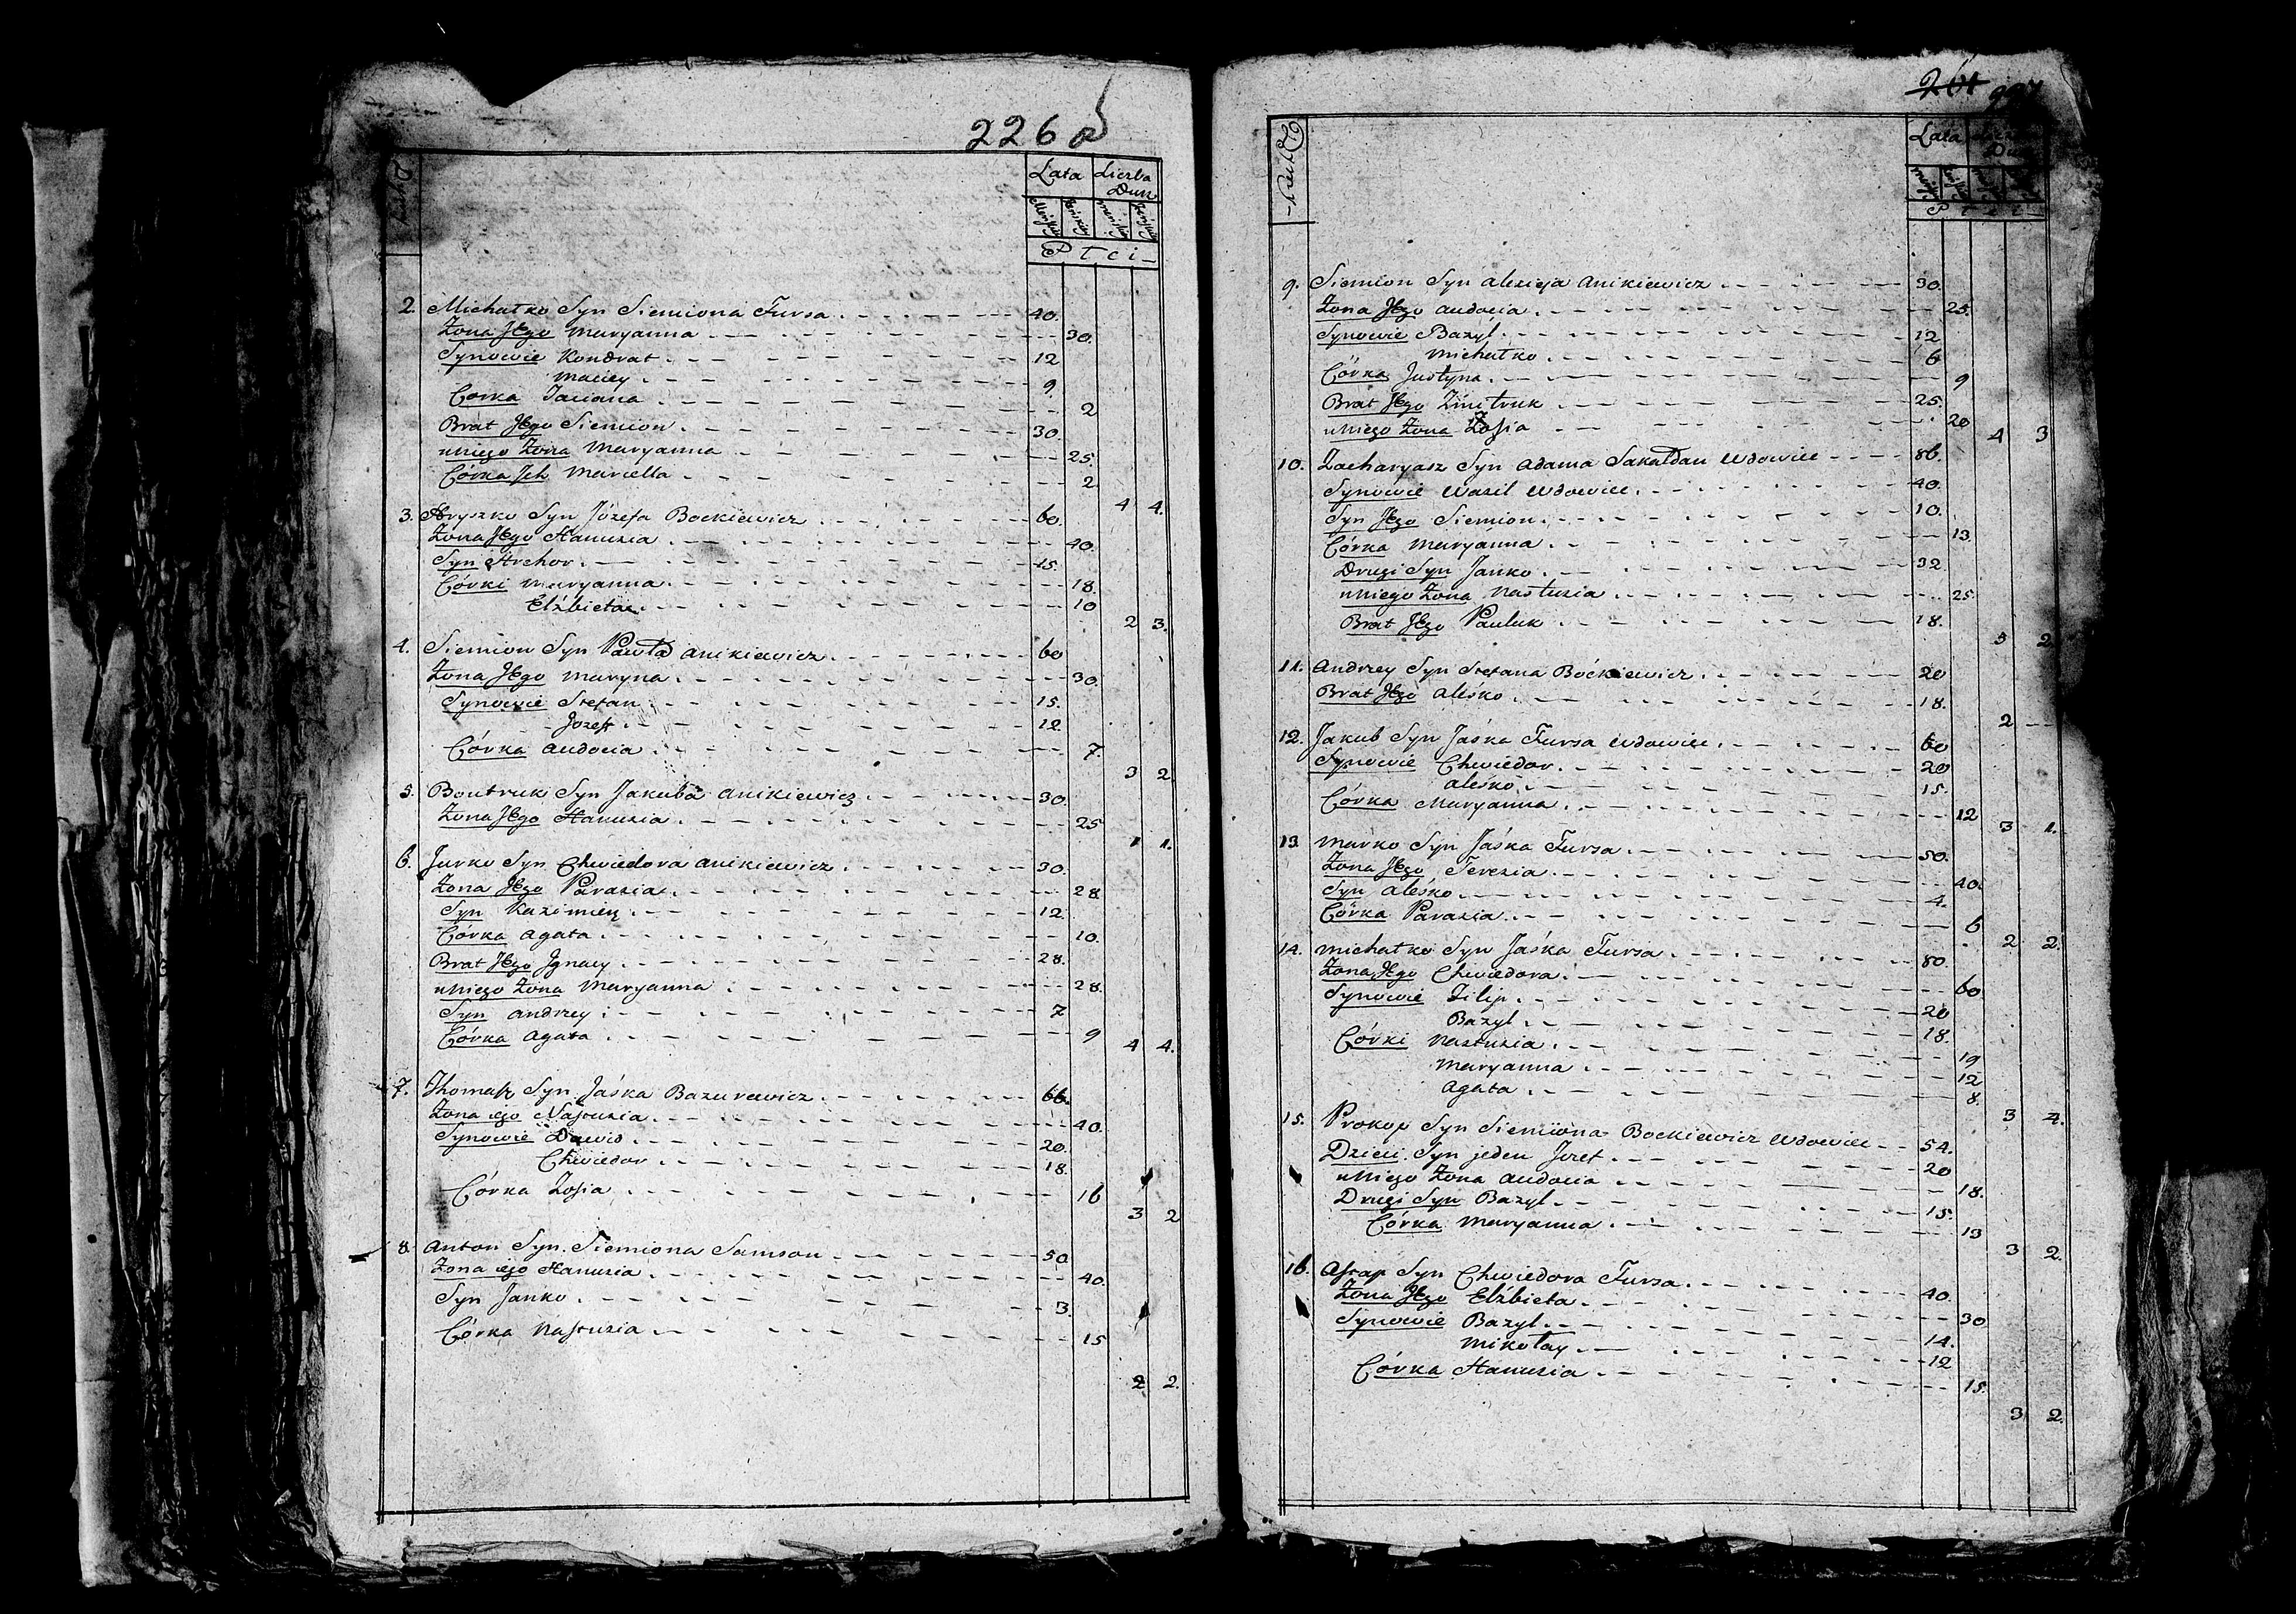 226
Lata Liczba Dusz
Płci
2. Michałko Syn Siemiona Fursa 40.
Żona Jego Maryanna 30.
Synowie Kondrat 12
Maciey 9.
Corka Taciana 2
Brat Jego Siemion 30.
u Niego Żona Maryanna 25.
Córka Ich Marcella 2
4 4.
3. Hryszko Syn Józefa Bockiewicz 60.
Żona Jego Hanusia 40.
Syn Archor 15
Córki Maryanna 18.
Elżbieta 10
2 3.
4. Siemion Syn Pawła Anikiewicz 60
Żona Jego Maryna 30.
Synowie Stefan 15.
Jozef 12
Córka Audocia 7.
3 2.
5. Boutruk Syn Jakuba Anikiewicz 30.
Żona Jego Hanusia 25
1 1.
6. Jurko Syn Chwiedora Anikiewicz 30.
Żona Jego Parasia 28.
Syn Kazimierz 12
Córka Agata 10.
Brat Jego Jgnacy 28.
u Niego Żona Maryanna 28.
Syn Andrzey 7
Córka Agata 9
4 4.
7. Thomasz Syn Jaśka Bazurewicz 66.
Żona iego Nastusia 40.
Synowie Dawid 20.
Chwiedor 18.
Córka Zosia 16
3 2
8. Anton Syn Siemiona Samson 50
Żona iego Hanusia 40.
Syn Janko 3.
Córka Nastusia 15
2 2.
261 227
Lata
Płci
9. Siemion Syn Alexieja Anikiewicz 30.
Żona Jego Audocia 25.
Synowie Bazyl 12
Michałko 6
Córka Justyna 9
Brat Jego Zmitruk 25.
u Niego Żona Zosia 20
4 3
10. Zacharyasz Syn Adama Sakałdau Wdowiec 86.
Synowie Wasil Wdowiec 40.
Syn Jego Siemion 10.
Córka Maryanna 13
Drugi Syn Janko 32
u Niego Żona Nastusia 25.
Brat Jego Pauluk 18.
5 2.
11. Andrzey Syn Stefana Boćkiewicz 20
Brat Jego Aleśko 18.
2 —
12. Jakub Syn Jaśka Fursa Wdowiec 60
Synowie Chwiedor 20
Aleśko 15.
Córka Maryanna 12
3 1.
13. Marko Syn Jaśka Fursa 50.
Żona Jego Teresia 40.
Syn Aleśko 4.
Córka Parasia 6
2 2.
14. Michałko Syn Jaśka Fursa 80.
Żona Jego Chwiedora 60
Synowie Filip 20
Bazyl 18.
Córki Nastusia 19
Maryanna 12
Agata 8.
3 4.
15. Prokop Syn Siemiona Bockiewicz Wdowiec 54.
Dzieci. Syn jeden Jozef 20
u Niego Żona Audocia 18.
Drugi Syn Bazyl 15.
Córka Maryanna 13
3 2.
16. Astap Syn Chwiedora Fursa 40.
Żona Jego Elżbieta 30
Synowie Bazyl 14.
Mikołay 12
Córka Hanusia 15.
3 2.